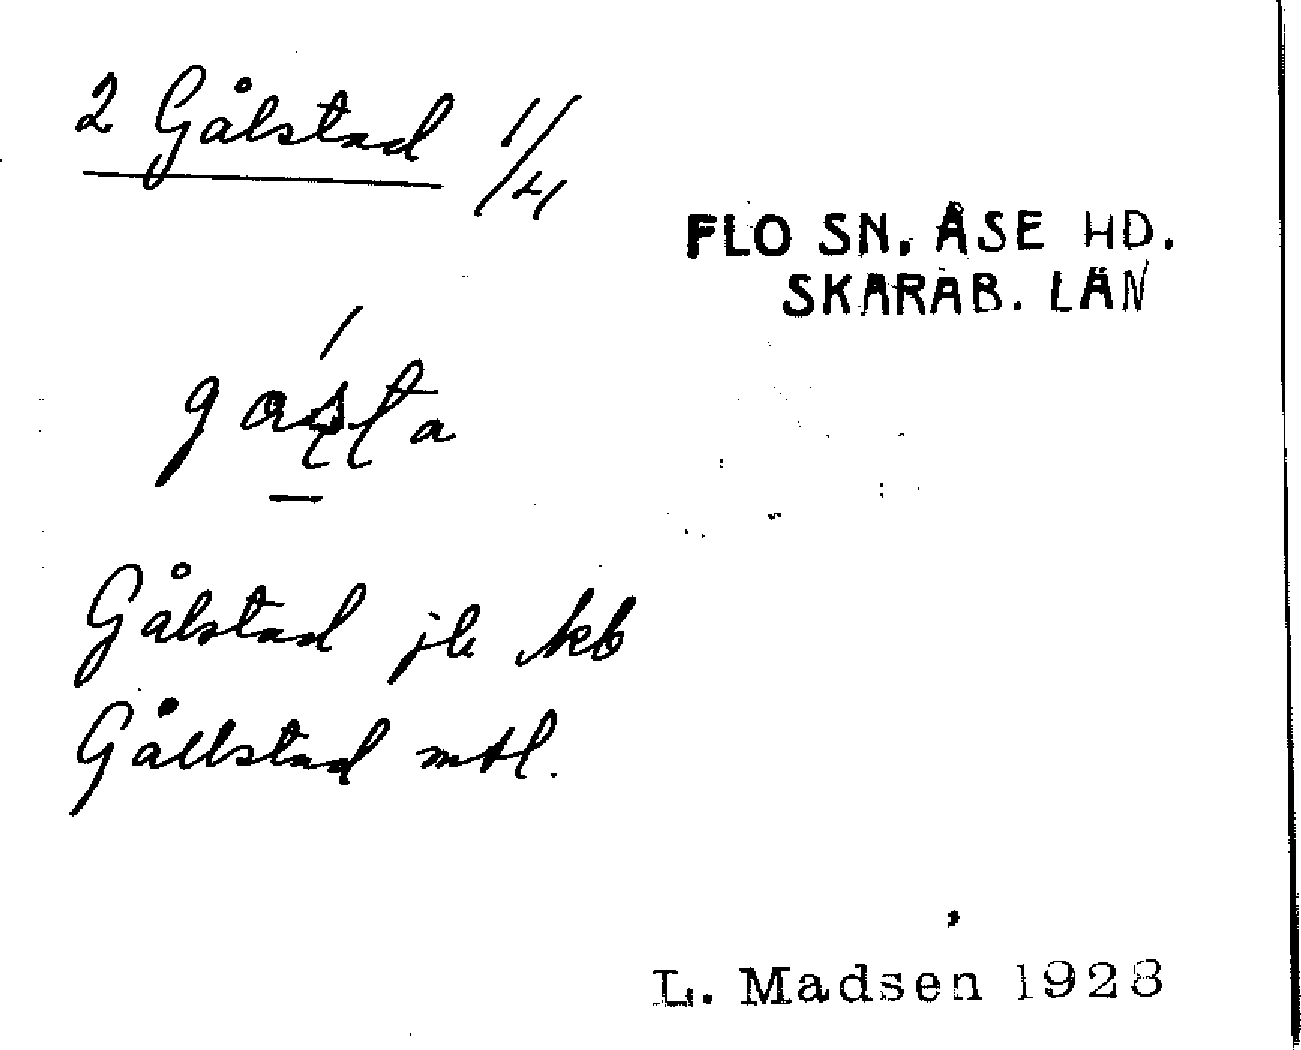 2 Gålstad 1/4
FLO SN. ÅSE HD.
SKARAB. LÄN
Gålstad jb kb
Gållstad mtl.
L. Madsen 1928